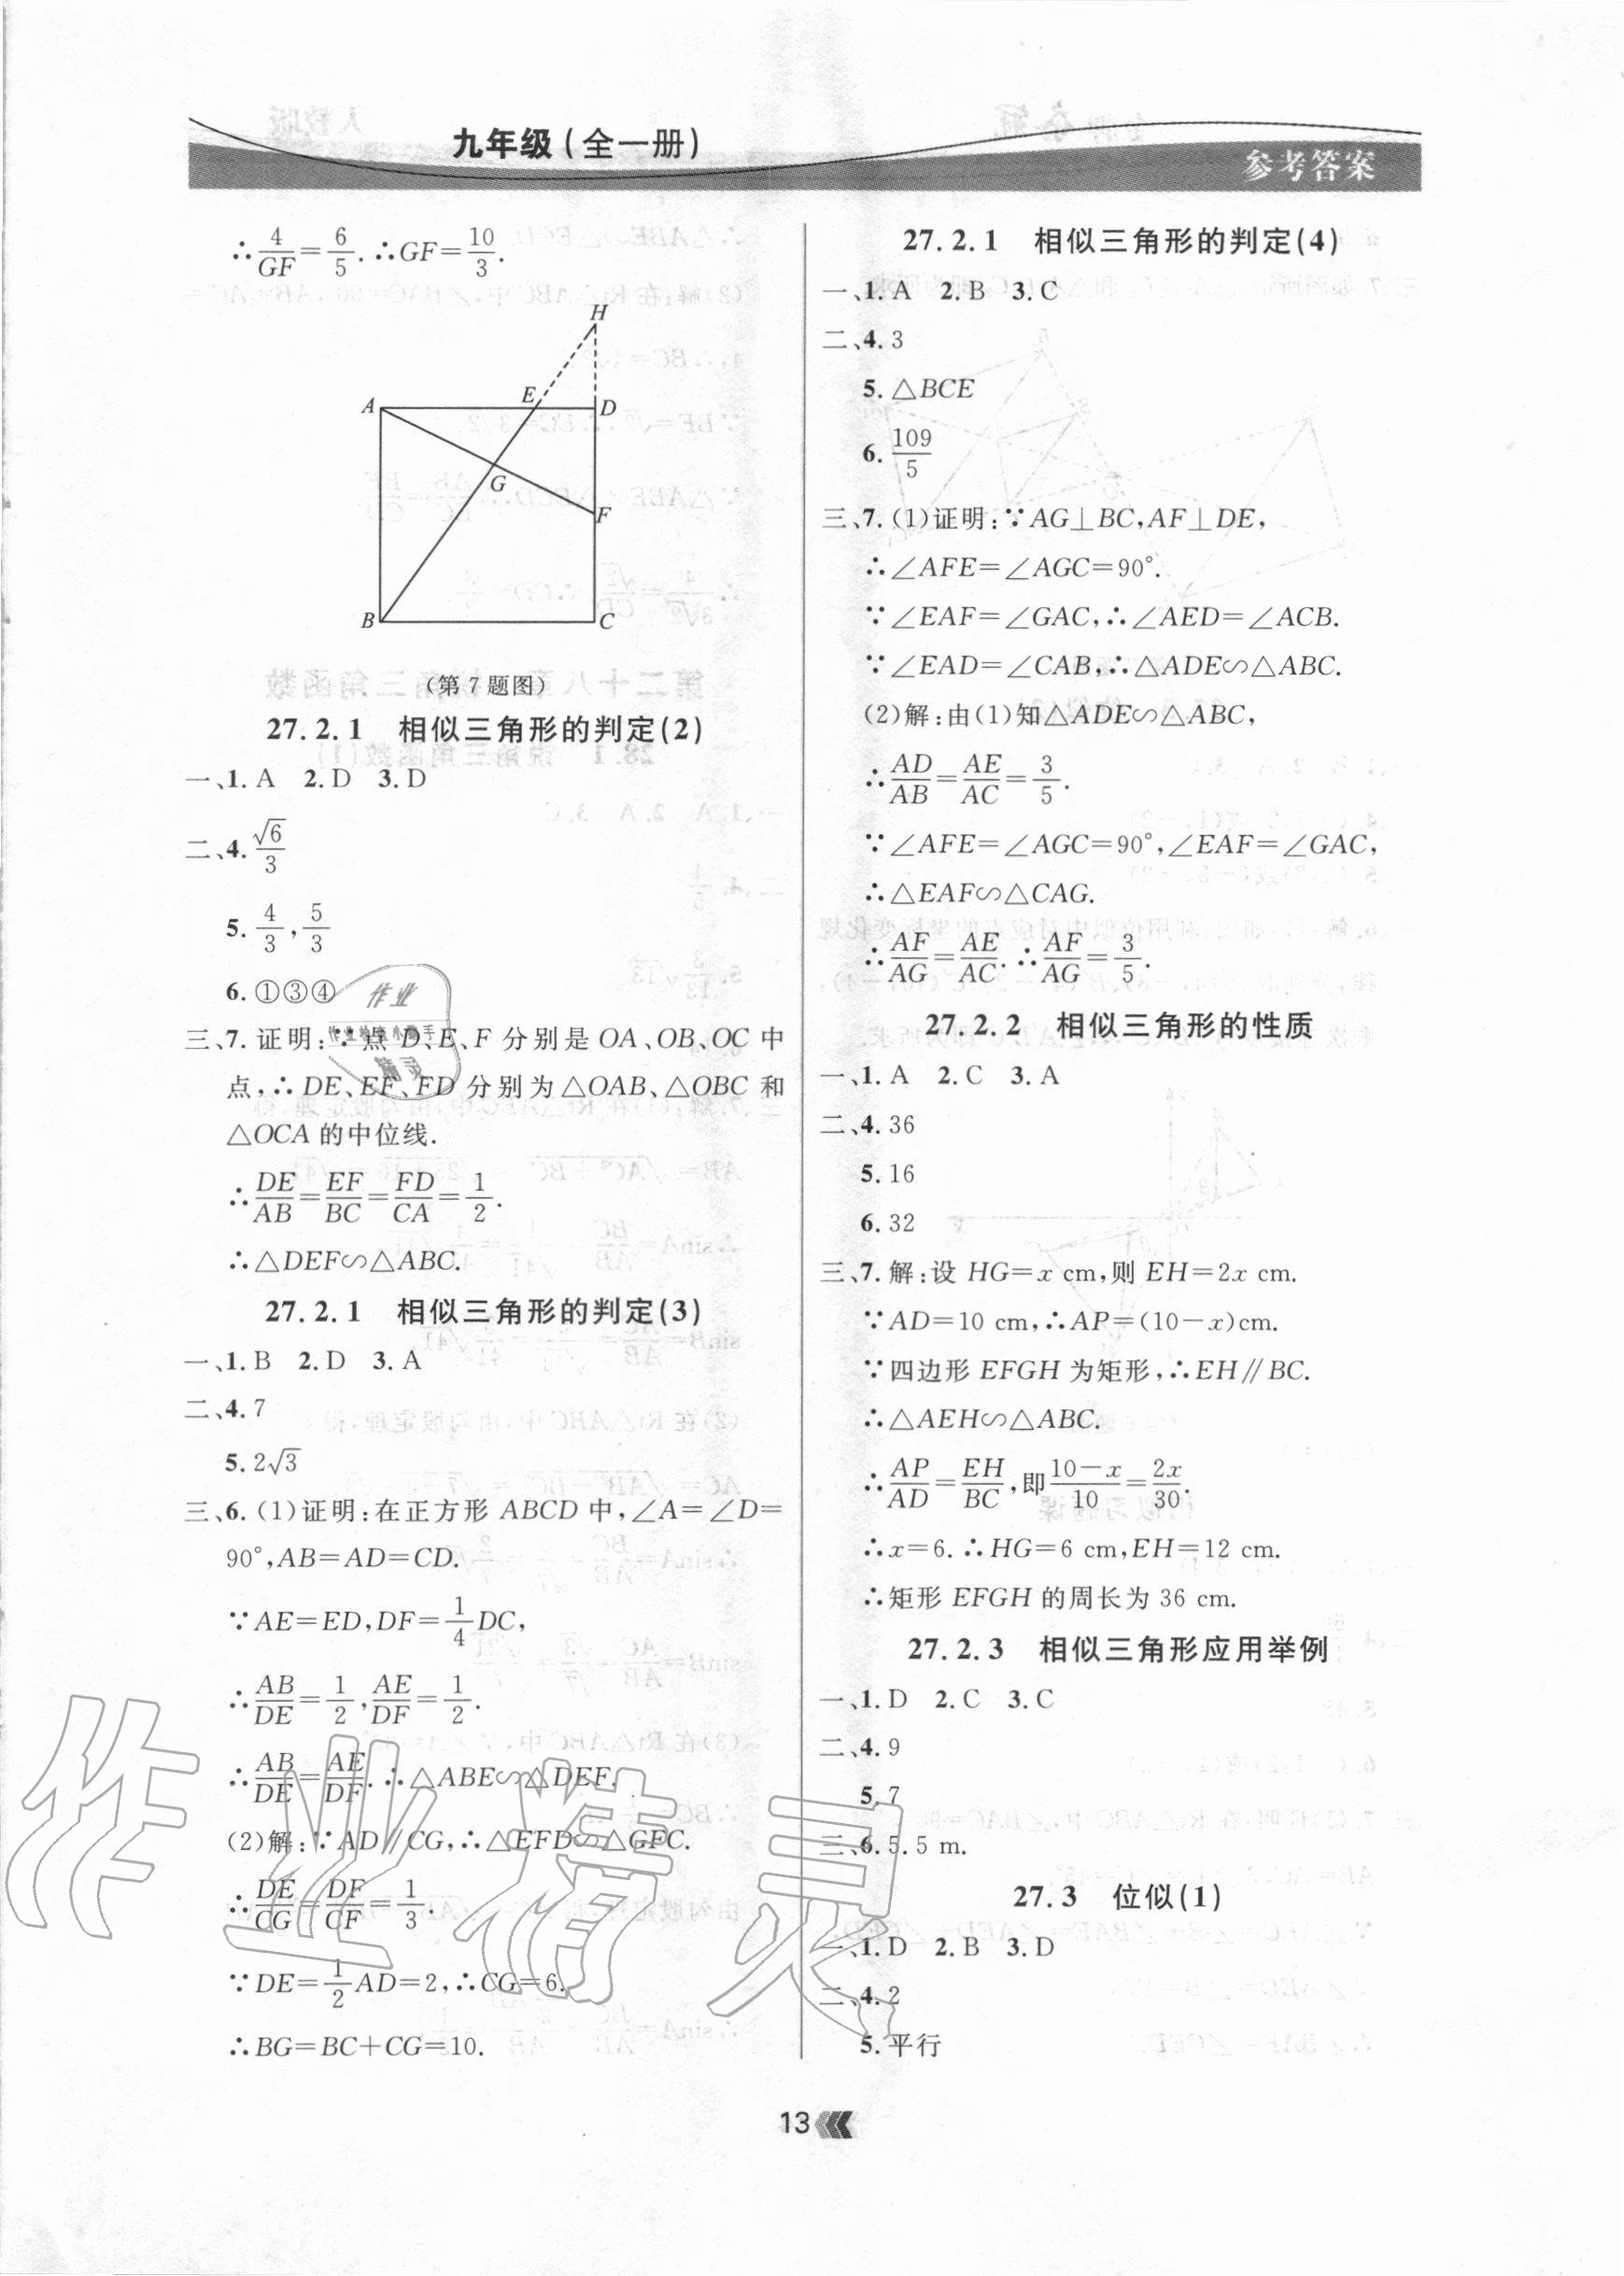 九年级(全一册)
参考答案
∴4/GF=6/5.∴GF=10/3.
H
A E D
G
F
B C
(第7题图)
27.2.1 相似三角形的判定(2)
一、1.A 2.D 3.D
二、4.√6/3
5.4/3,5/3
6.①③④
三、7.证明:∵点 D、E、F 分别是 OA、OB、OC 中
点,∴DE、EF、FD 分别为△OAB、△OBC 和
△OCA 的中位线.
∴DE/AB=EF/BC=FD/CA=1/2.
∴△DEF∽△ABC.
27.2.1 相似三角形的判定(3)
一、1.B 2.D 3.A
二、4.7
5.2√3
三、6.(1)证明:在正方形 ABCD 中,∠A=∠D=
90°,AB=AD=CD.
∵AE=ED,DF=1/4DC,
∴AB/DE=1/2,AE/DF=1/2.
∴AB/DE=AE/DF.∴△ABE∽△DEF.
(2)解:∵AD∥CG,∴△EFD∽△GFC.
∴DE/CG=DF/CF=1/3.
∵DE=1/2AD=2,∴CG=6.
∴BG=BC+CG=10.
27.2.1 相似三角形的判定(4)
一、1.A 2.B 3.C
二、4.3
5.△BCE
6.109/5
三、7.(1)证明:∵AG⊥BC,AF⊥DE,
∴∠AFE=∠AGC=90°.
∵∠EAF=∠GAC,∴∠AED=∠ACB.
∵∠EAD=∠CAB,∴△ADE∽△ABC.
(2)解:由(1)知△ADE∽△ABC,
∴AD/AB=AE/AC=3/5.
∵∠AFE=∠AGC=90°,∠EAF=∠GAC,
∴△EAF∽△CAG.
∴AF/AG=AE/AC.∴AF/AG=3/5.
27.2.2 相似三角形的性质
一、1.A 2.C 3.A
二、4.36
5.16
6.32
三、7.解:设 HG=x cm,则 EH=2x cm.
∵AD=10 cm,∴AP=(10-x)cm.
∵四边形 EFGH 为矩形,∴EH∥BC.
∴△AEH∽△ABC.
∴AP/AD=EH/BC,即10-x/10=2x/30.
∴x=6.∴HG=6 cm,EH=12 cm.
∴矩形 EFGH 的周长为 36 cm.
27.2.3 相似三角形应用举例
一、1.D 2.C 3.C
二、4.9
5.7
三、6.5.5 m.
27.3 位似(1)
一、1.D 2.B 3.D
二、4.2
5.平行
13
作业精灵